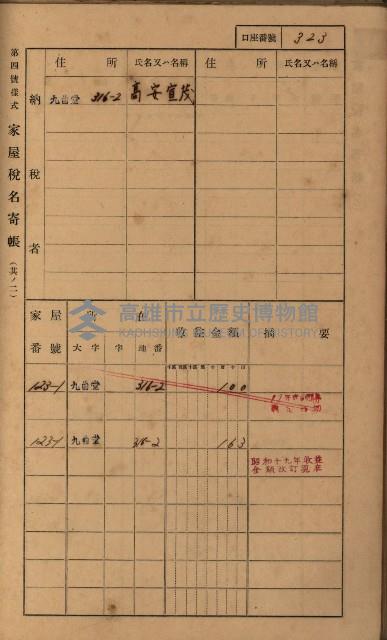 口座番號 323
第四號樣式 家屋稅名寄帳 (其ノ二)
納稅者
住所 氏名又ハ名稱 住所 氏名又ハ名稱
九曲堂 316-2 高安宣茂
高雄市立歷史博物館
KAOHSIUNG MUSEUM OF HISTORY
家屋番號 家屋所在 收益金額 摘要
大字 字 地番
123-1 九曲堂 316-2 100
123-1 九曲堂 316-2 163
昭和十九年收益
金額改訂